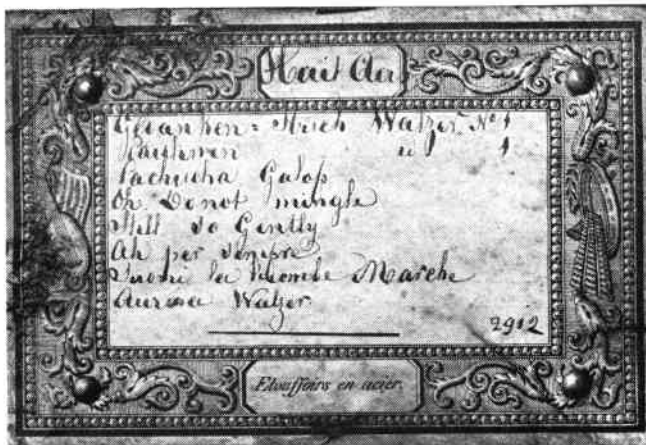 Huit Airs
Gedanken = Strich Walzer No 1
" 1
Cachucha Galop
Oh Do not mingle
Still So Gently
Ah per sempre
Suoni la tromba Marche
Aurora Walzer
2912
Etouffoirs en acier.